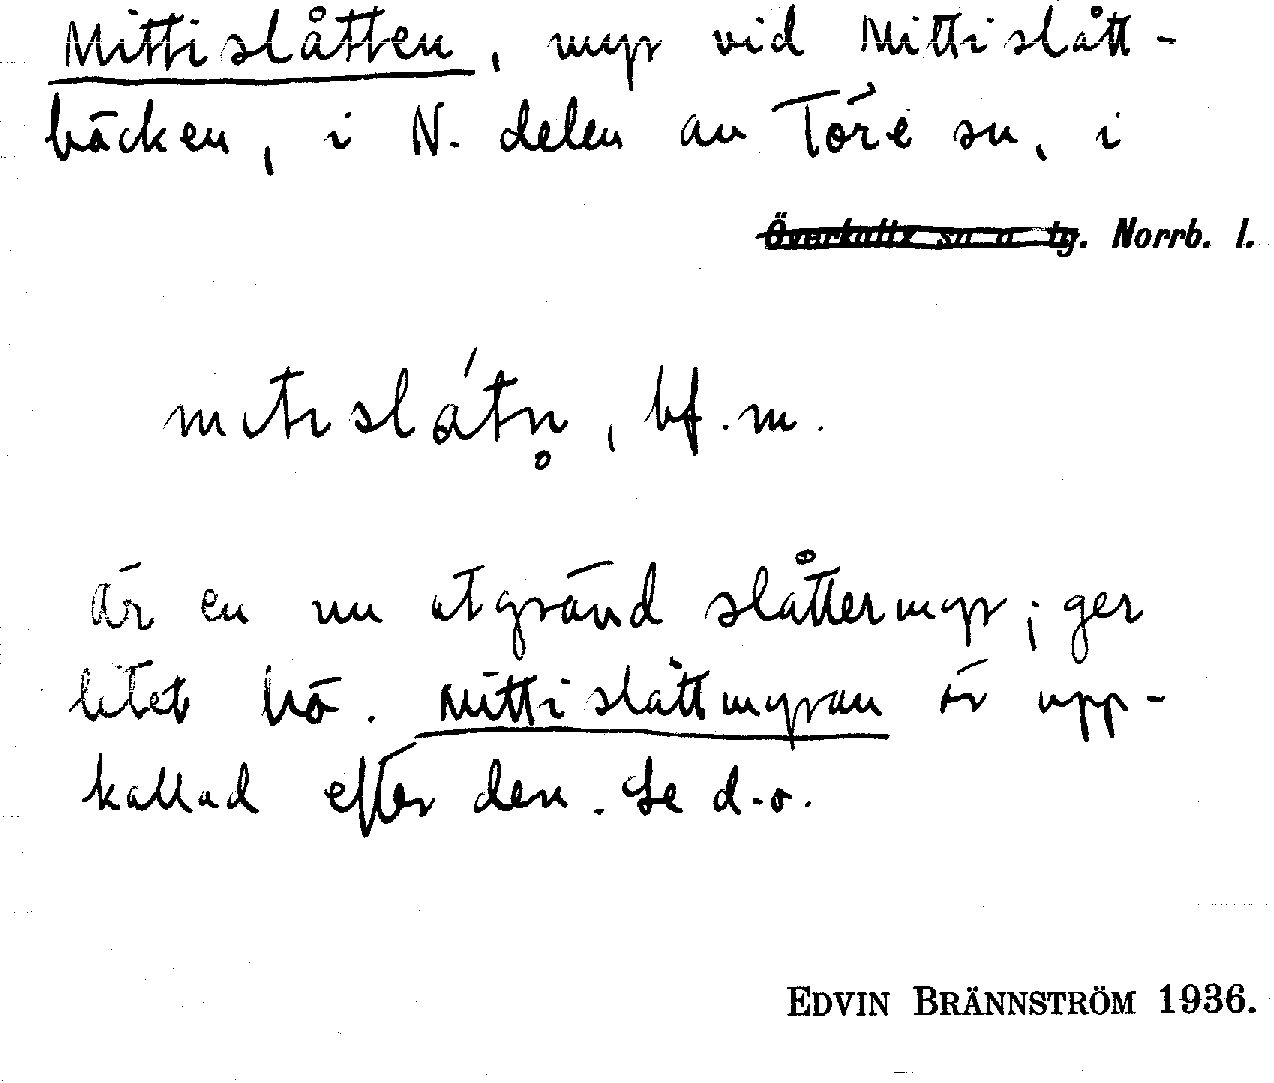 Mittislåtten, myr vid Mittislått-
bäcken, i N. delen av Töre sn, i
Överkalix sn o. tg. Norrb. l.
mitislátn̥, bf. m.
är en nu utgränd slåttermyr; ger
litet hö. Mittislåttmyran är upp-
kallad efter den. Se d.o.
EDVIN BRÄNNSTRÖM 1936.